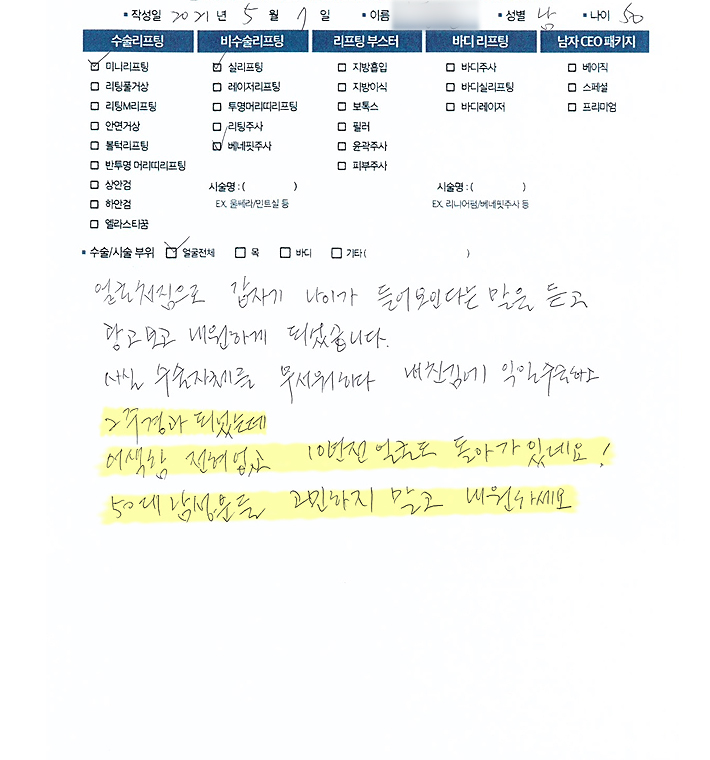 작성일 2021년 5월 7일 이름 성별 남 나이 50
수술리프팅 비수술리프팅 리프팅 부스터 바디 리프팅 남자 CEO 패키지
미니리프팅 실리프팅 지방흡입 바디주사 베이직
리팅풀거상 레이저리프팅 지방이식 바디실리프팅 스페셜
리팅M리프팅 투명머리띠리프팅 보톡스 바디레이저 프리미엄
안면거상 리팅주사 필러
볼턱리프팅 베네핏주사 윤곽주사
반투명 머리띠리프팅 피부주사
상안검 시술명 : ( ) 시술명 : ( )
하안검 EX. 울쎄라/민트실 등 EX. 리니어펌/베네핏주사 등
엘라스티꿈
수술/시술 부위 얼굴전체 목 바디 기타 ( )
얼굴처짐으로 갑자기 나이가 들어보인다는 말을 듣고
광고보고 내원하게 되었습니다.
사실 수술자체를 무서워하다 내친김에 익일수술하고
2주경과 되었는데
어색함 전혀없고 10년전 얼굴로 돌아가 있네요!
50대 남성분들 고민하지 말고 내원하세요